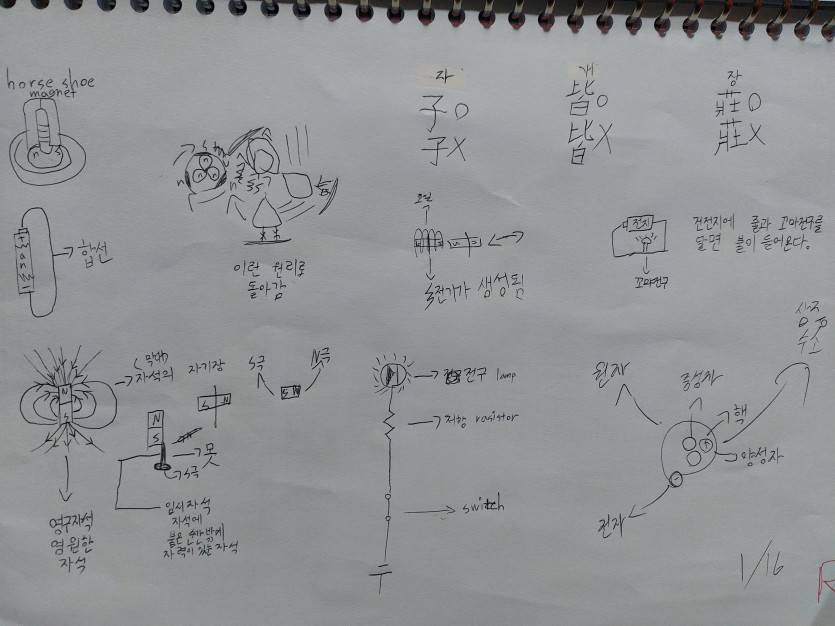 horse shoe
magnet
n s
자
子 O
子 X
개
皆 O
皆 X
장
莊 O
莊 X
합선
이런 원리로
돌아감
코일
전기가 생성됨
전지
꼬마전구
건전지에 줄과 꼬마전구를
달면 불이 들어온다.
(막대)
자석의 자기장
N
S
S N
S극
N극
N
S
못
S극
영구자석
영원한
자석
임시자석
자석에
붙은 순간밖에
자력이 있는 자석
전구 lamp
저항 rasistor
switch
원자
중성자
핵
양성자
전자
수소
1/16
R